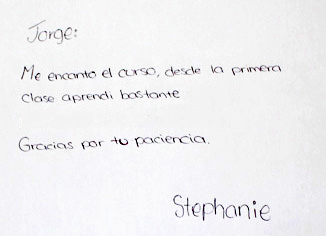 Jorge:
Me encanto el curso, desde la primera
clase aprendi bastante
Gracias por tu paciencia.
Stephanie